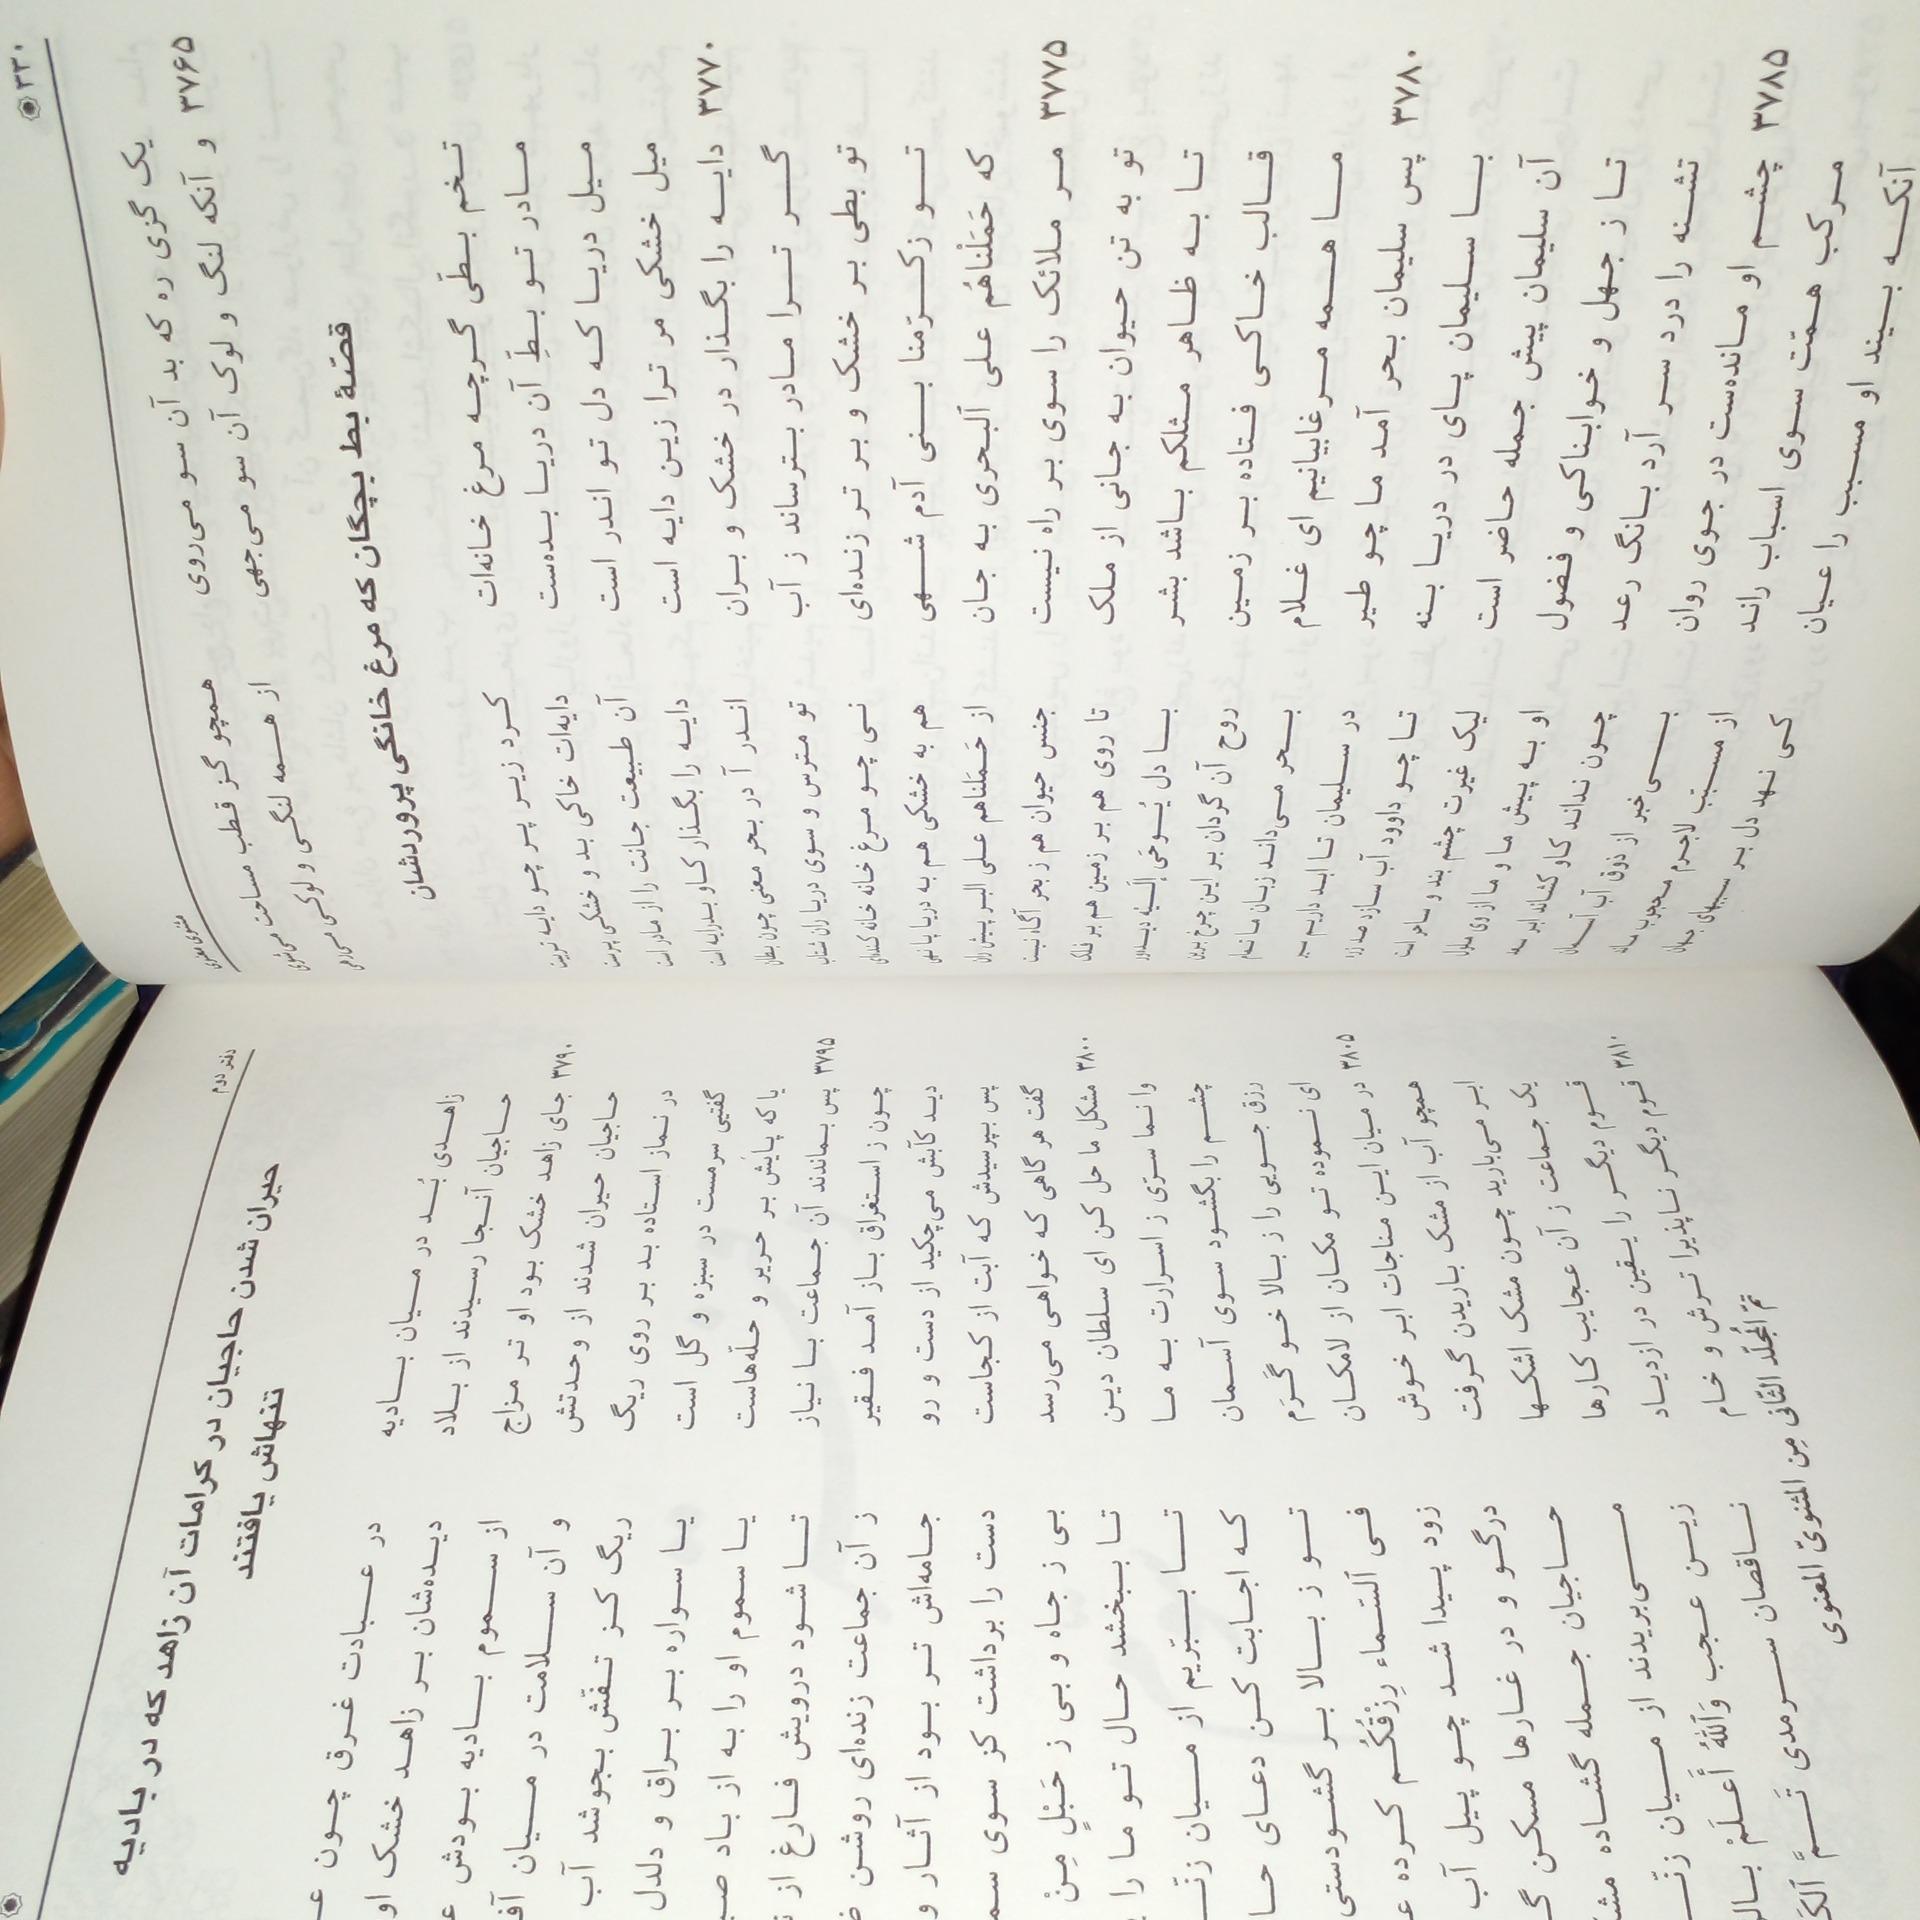 ۳۳۰
مثنوی معنوی
یک گزی ره که بد آن سو می‌روی همچو گز قطب مساحت می‌شوی
۳۷۶۵ و آنکه لنگ و لوک آن سو می‌جهی از همه لنگی و لوکی می‌رهی
قصّهٔ بط بچگان که مرغ خانگی پروردشان
تخم بطّی گرچه مرغ خانه‌ات کرد زیر پر چو دایه تربیت
مادر تو بطِّ آن دریا بده‌ست دایه‌ات خاکی بد و خشکی پرست
میل دریا که دل تو اندر است آن طبیعت جانت را از مادر است
میل خشکی مر ترا زین دایه است دایه را بگذار کاو بدرایه است
۳۷۷۰ دایه را بگذار در خشک و بران اندر آ در بحر معنی چون بطان
گر ترا مادر بترساند ز آب تو مترس و سوی دریا ران شتاب
تو بطی بر خشک و بر تر زنده‌ای نی چو مرغ خانه خانه کنده‌ای
تو زکرّمنا بنی آدم شهی هم به خشکی هم به دریا پا نهی
که حَمَلْناهُم علی ٱلبحری به جان از حَمَلناهم علی البر پیش ران
۳۷۷۵ مر ملائک را سوی بر راه نیست جنس حیوان هم ز بحر آگاه نیست
تو به تن حیوان به جانی از ملک تا روی هم بر زمین هم بر فلک
تا به ظاهر مثلکم باشد بشر با دل یُوحَی إلَیهِ دیده‌ور
قالب خاکی فتاده بر زمین روح آن گردان بر این چرخ برین
ما همه مرغابیانیم ای غلام بحر می‌داند زبان ما تمام
۳۷۸۰ پس سلیمان بحر آمد ما چو طیر در سلیمان تا ابد داریم سیر
با سلیمان پای در دریا بنه تا چو داوود آب سازد صد زره
آن سلیمان پیش جمله حاضر است لیک غیرت چشم بند و ساحر است
تا ز جهل و خوابناکی و فضول او به پیش ما و ما از وی ملول
تشنه را درد سر آرد بانگ رعد چون نداند کاو کشاند ابر سعد
۳۷۸۵ چشم او مانده‌ست در جوی روان بی‌خبر از ذوق آب آسمان
مرکب همّت سوی اسباب راند از مسبّب لاجرم محجوب ماند
آنکه بیند او مسبب را عیان کی نهد دل بر سببهای جهان
دفتر دوم
حیران شدن حاجیان در کرامات آن زاهد که در بادیه
تنهاش یافتند
زاهدی بُد در میان بادیه در عبادت غرق چون
حاجیان آنجا رسیدند از بلاد دیده‌شان بر زاهد خشک او
۳۷۹۰ جای زاهد خشک بود او تر مزاج از سموم بادیه بودش
حاجیان حیران شدند از وحدتش و آن سلامت در میان
در نماز استاده بد بر روی ریگ ریگ کز تفّش بجوشد آب
گفتیی سرمست در سبزه و گل است یا سواره بر براق و دلدل
یا که پایش بر حریر و حلّه‌هاست یا سموم او را به از باد
۳۷۹۵ پس بماندند آن جماعت با نیاز تا شود درویش فارغ از
چون ز استغراق باز آمد فقیر ز آن جماعت زنده‌ای روشن
دید کآبش می‌چکید از دست و رو جامه‌اش تر بود از آثار و
پس بپرسیدش که آبت از کجاست دست را برداشت کز سوی
گفت هر گاهی که خواهی می‌رسد بی ز جاه و بی ز حَبْلٍ مِنْ
۳۸۰۰ مشکل ما حل کن ای سلطان دین تا ببخشد حال تو ما را
وا نما سرّی ز اسرارت به ما تا ببرّیم از میان
چشم را بگشود سوی آسمان که اجابت کن دعای
رزق جویی را ز بالا خو گرَم تو ز بالا بر گشودستی
ای نموده تو مکان از لامکان فی ٱلسّماء رِزْقُکُم کرده
۳۸۰۵ در میان این مناجات ابر خوش زود پیدا شد چو پیل آب
همچو آب از مشک باریدن گرفت درگو و در غارها مسکن
ابر می‌بارید چون مشک اشکها حاجیان جمله گشاده
یک جماعت ز آن عجایب کارها می‌بریدند از میان
قوم دیگر را یقین در ازدیاد زین عجب وَٱللهُ أَعلَمْ
۳۸۱۰ قوم دیگر ناپذیرا ترش و خام ناقصان سرمدی تَمَّ
تمّ المُجلّد الثّانی مِن المثنویّ المعنوی